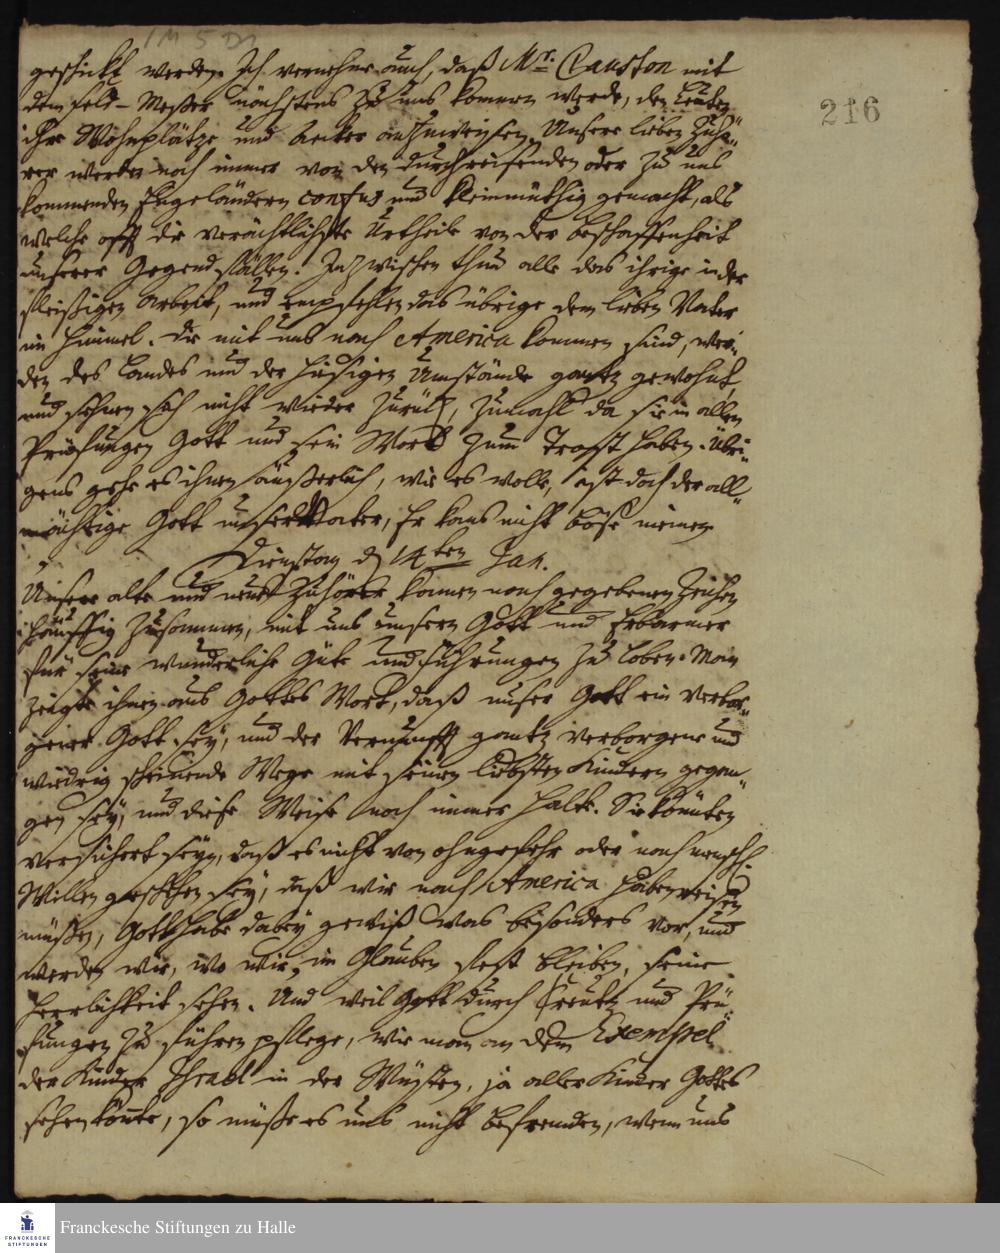 1M 5 D1
216
geschickt werden. Ich vernehme auch, daß Mr. Causton mit
dem Feld-Meßer nächstens zu uns kommen werde, den Leuten
ihre Wohnplätze und Aecker anzuweisen. Unsere lieben Zuhö¬
rer werden noch immer von den durchreisenden oder zu uns
kommenden Engeländern confus und kleinmüthig gemacht, als
welche offt die verächtlichste Urtheile von der Beschaffenheit
unserer Gegend fällen. Inzwischen thun alle das ihrige in der
fleißigen Arbeit, und empfehlen das übrige dem lieben Vater
im Himmel. Die mit uns nach America kommen sind, wer¬
den des Landes und der hiesigen Umstände gantz gewohnt,
und sehnen sich nicht wieder zurück, zumahl da sie in allen
Prüfungen Gott und sein Wort zum Trost haben. Übri¬
gens gehe es ihnen äußerlich, wie es wolle, ist doch der all¬
mächtige Gott unser Vater, Er kans nicht böse meinen
Dienstag d 14ten Jan.
Unsere alte und neue Zuhörer kamen nach gegebenen Zeichen
häuffig zusammen, mit uns unsern Gott und Erbarmer
für seine wunderliche Güte und Führungen zu loben. Man
zeigte ihnen aus Gottes Wort, daß unser Gott ein verbor¬
gener Gott sey, und der Vernunfft gantz verborgene und
wiedrig scheinende Wege mit seinen liebsten Kindern gegan¬
gen sey, und diese Weise noch immer halte. Sie könnten
versichert seyn, daß es nicht von ohngefehr oder nach menschl.
Willen geschehen sey, daß wir nach America haben reisen
müßen, Gott habe dabey gewiß was besonders vor, und
werden wir, wo wir im Glauben fest bleiben, seine
Herrlichkeit sehen. Und weil Gott durch Creutz und Prü¬
fungen zu führen pflege, wie man an dem Exempel
der Kinder Israel in der Wüsten, ja aller Kinder Gottes
sehen könte, so müße es uns nicht befremden, wenn uns
FRANCKESCHE
STIFTUNGEN
Franckesche Stiftungen zu Halle